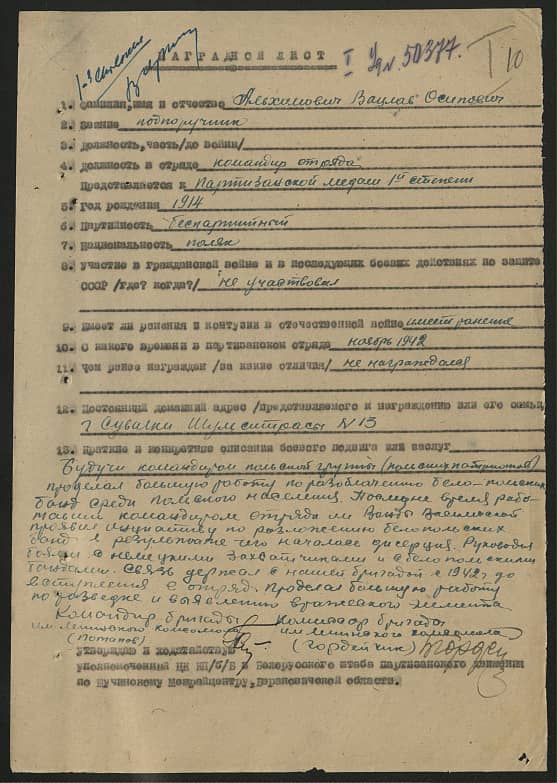 НАГРАДНОЙ ЛИСТ
I 50377. I 10
1. Фамилия, имя и отчество Альхимович Вацлав Осипович
2. Звание подпоручник
3. Должность, часть /до войны/
4. Должность в отряде командир отряда
Представляется к Партизанской медали 1й степени
5. Год рождения 1914
6. Партийность беспартийный
7. Национальность поляк
8. Участие в гражданской войне и в последующих боевых действиях по защите
СССР /где? когда?/ не участвовал
9. Имеет ли ранения и контузии в отечественной войне имеет ранения
10. С какого времени в партизанском отряде ноябрь 1942
11. Чем ранее награжден /за какие отличия/ не награждался
12. Постоянный домашний адрес /представляемого к награждению или его семьи/
г Сувалки N 13
13. Краткие и конкретные описания боевого подвига или заслуг
Будучи командиром польской группы (польских патриотов)
проделал большую работу по разоблачению бело-польских
банд среди польского населения. Последне время рабо-
командиром отряда им Ванды Василевской
проявил инициативу по разложению белопольских
банд в результате чего началась дисерция. Руководил
боями с немецкими захватчиками и с белопольскими
бандами. Связь держал с нашей бригадой с 1942 г до
вступления в отряд. Проделал большую работу
по разведке и выявлению вражеского элемента
Командир бригады Комиссар бригады
им Ленинского комсомола им Ленинского комсомола
(Потапов) (Гордейчик)
утверждаю и ходатайствую
уполномоченный ЦК КП/б/Б и Белорусского штаба партизанского движения
по Щучинскому Межрайцентру, Барановичской области.